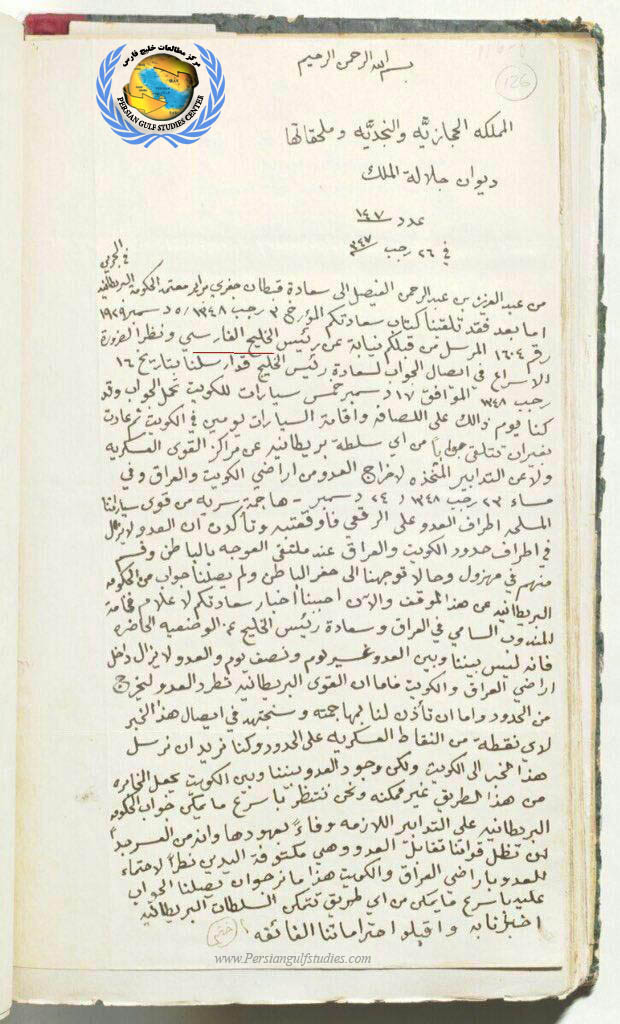 مركز مطالعات خليج فارس
PERSIAN GULF STUDIES CENTER
126
بسم الله الرحمن الرحيم
المملكه الحجازيَّه والنجديَّه وملحقاتها
ديوان جلالة الملك
عدد ١٤٧
في ٢٦ رجب ٣٤٧
من عبد العزيز بن عبد الرحمن الفيصل الى سعادة قبطان معتمد الحكومة البريطانيه
اما بعد فقد تلقينا كتاب سعادتكم المؤرخ ٣ رجب ١٣٤٨ / ٥ دسمبر ١٩٢٩
رقم ١٦٠٤ المرسل من قبلكم نيابة عن رئيس الخليج الفارسي ونظرا لضرورة
الاسراع في ايصال الجواب لسعادة رئيس الخليج فقد ارسلنا بتاريخ ١٦
رجب ١٣٤٨ الموافق ١٧ دسمبر خمس سيارات للكويت تحمل الجواب وقد
كنا يوم ذالك على اللصافه واقامة السيارات يومين في الكويت ثم عادت
بغيران نتلقى جواباً من اي سلطة بريطانيه عن مراكز القوى العسكريه
ولا عن التدابير المتخذه لاخراج العدو من اراضي الكويت والعراق وفي
مساء ٢٣ رجب ١٣٤٨ / ٢٤ دسمبر - هاجمة سريه من قوى سياراتنا
المسلحه اطراف العدو على الرقعي فاوقعت به وتأكدن ان العدو لا يزال
في اطراف حدود الكويت والعراق عند ملتقى العوجه بالباطن وقسم
منهم في مهزول وحالا توجهنا الى حفر الباطن ولم يصلنا جواب من الحكومه
البريطانيه عن هذا الموقف والان احببنا اخبار سعادتكم لاعلام فخامة
المندوب السامي في العراق وسعادة رئيس الخليج الحاضره
فانه ليس بيننا وبين العدو غير يوم ونصف يوم والعدو لا يزال داخل
اراضي العراق والكويت فاما ان القوى البريطانيه تطرد العدو ليخرج
من الحدود واما ان تأذن لنا بمهاجمته وسنجتهد في ايصال هذا الخبر
لاي نقطة من النقاط العسكريه على الحدود وكنا نريد ان نرسل
هذا الخبر الى الكويت ولكن وجود العدو بيننا وبين الكويت يجعل المخابره
من هذا الطريق غير ممكنه ونحن ننتظر باسرع ما يمكن جواب الحكومه
البريطانيه على التدابير اللازمه وفاءً بعهودها وانه من
ان تظل قواتنا تقابل العدو وهي مكتوفة اليدين نظراً لاحتماء
العدو باراضي العراق والكويت هذا ما نرجوان يصلنا الجواب
عليه باسرع ما يمكن من اي طريق تتمكن السلطات البريطانيه
اخبارنا به واقبلو احتراماتنا الفائقه
ختم
www.Persiangulfstudies.com